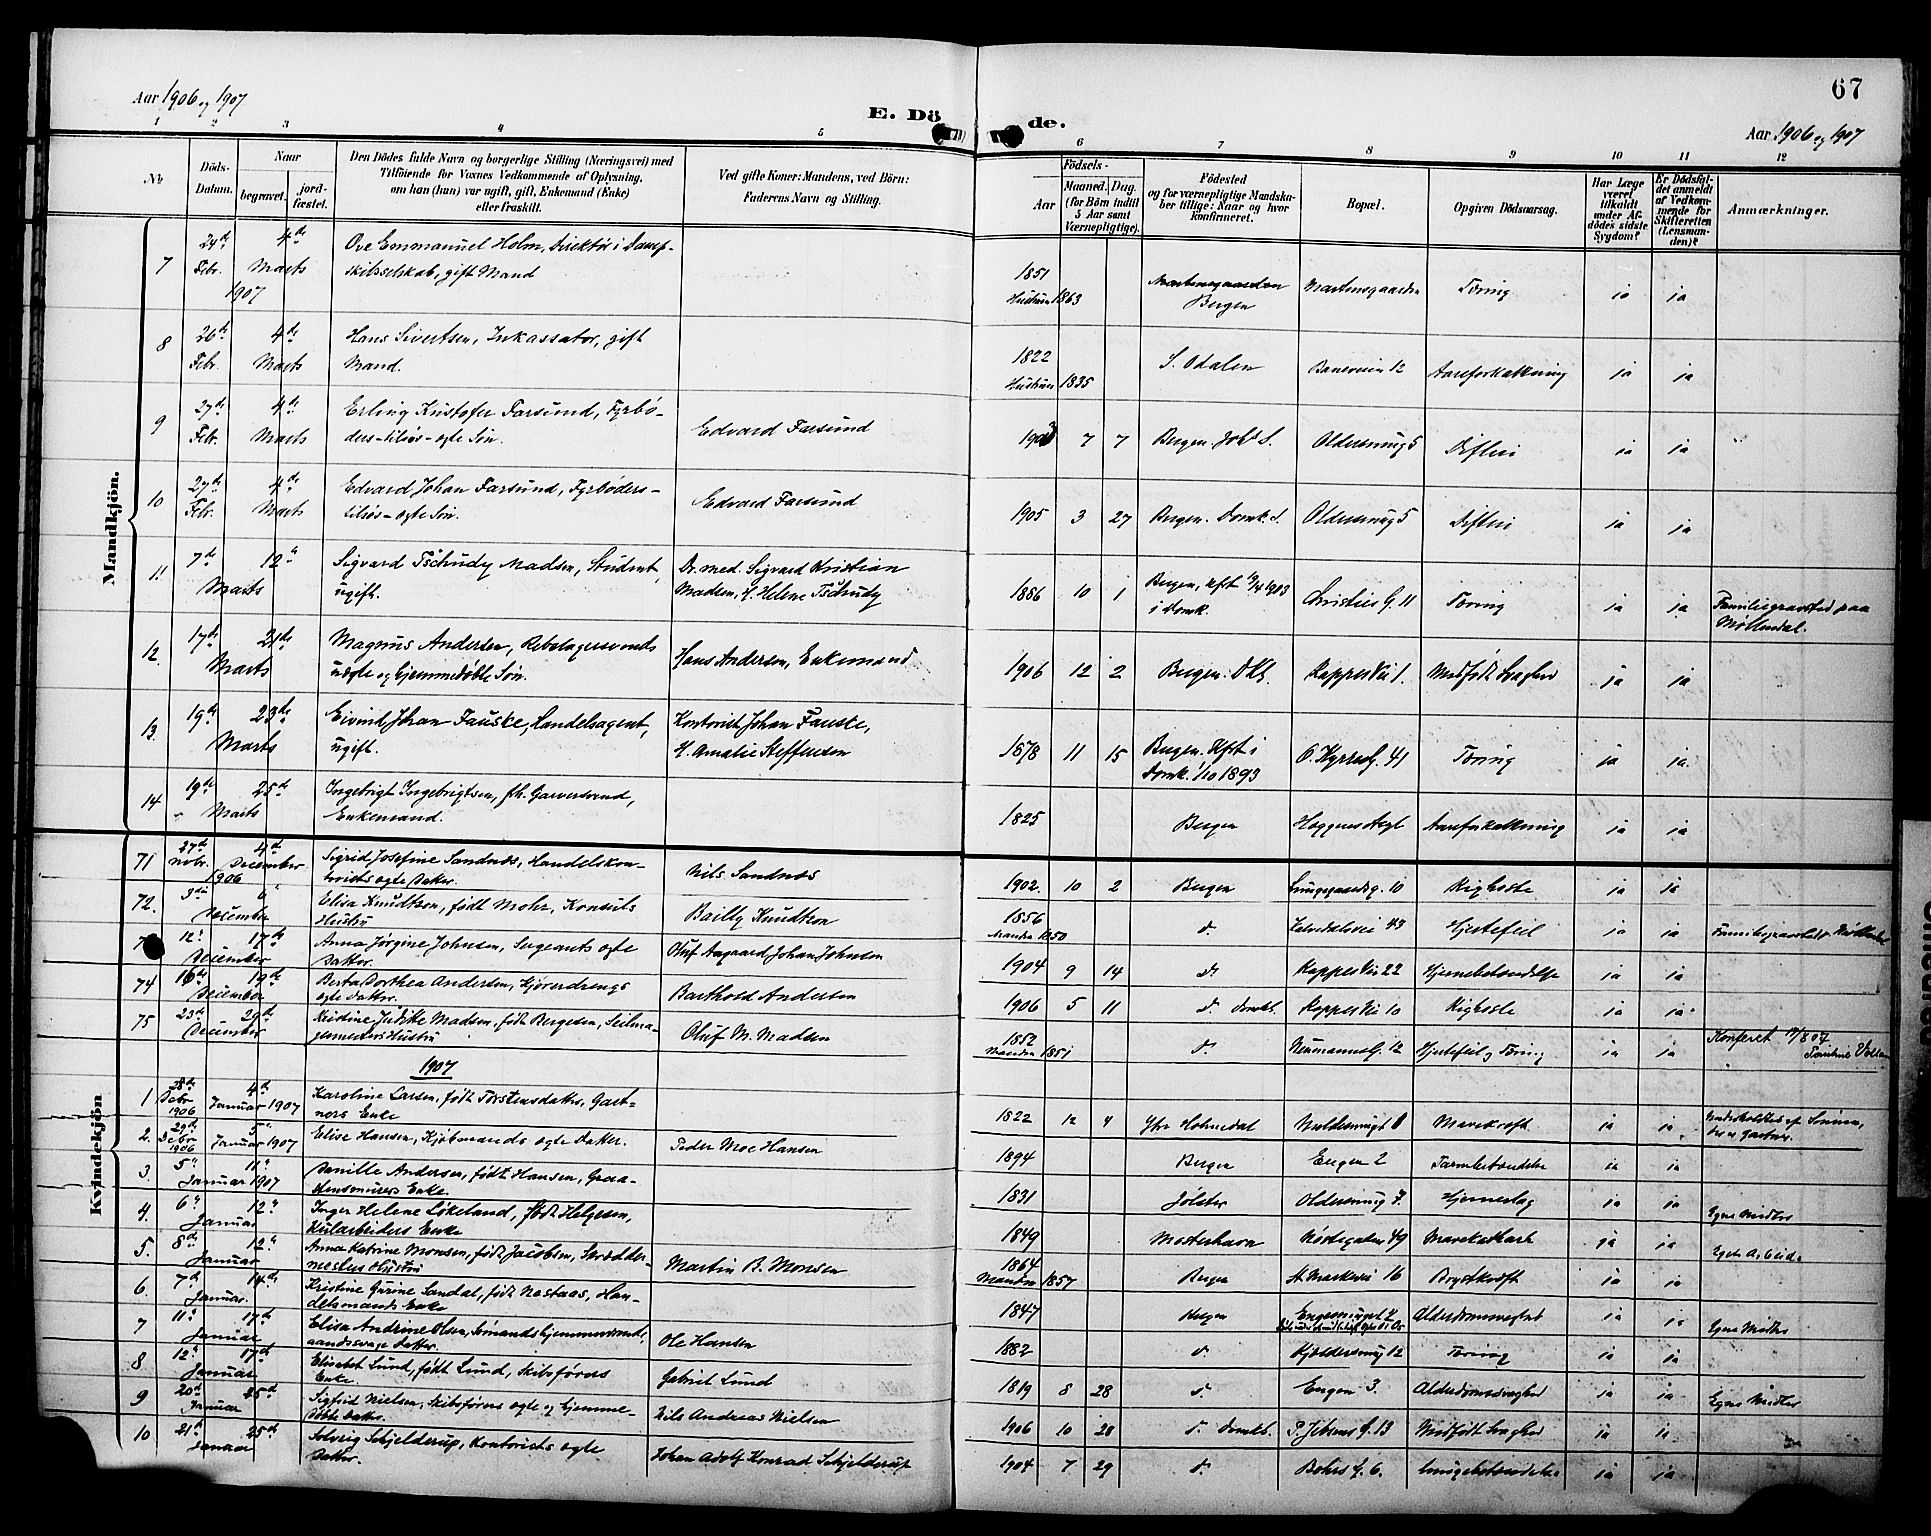 Aar 1906 og 1907
E. Dö
de.
67
Aar 1906 og 1907
1 2 3 4 5 6 7 8 9 10 11 12
No
Döds-Datum.
Naar
begravet.
jordfæstet.
Den Dödes fulde Navn og borgerlige Stilling (Næringsvei) med
Tilföiende for Voxnes Vedkommende af Oplysning,
om han (hun) var ugift, gift, Enkemand (Enke)
eller fraskilt.
Ved gifte Koner: Mandens, ved Börn:
Faderens Navn og Stilling.
Födsels-
Aar
Maaned. Dag.
(for Börn indtil
5 Aar samt
Værnepligtige).
Födested
og for værnepligtige Mandskaber tillige: Naar og hvor
konfirmeret.
Bopæl.
Opgiven Dödsaarsag.
Har Læge
været
tilkaldt
under Afdödes sidste
Sygdom?
Er Dödsfaldet anmeldt
af Vedkommende for
Skifteretten
(Lensmanden)?
Anmærkninger.
Mandkjön.
7 24de Febr. 4de Marts 1907 Ove Emmanuel Holm, Direktør i Dampskibsselskab, gift Mand 1851 Hustruen 1863 Martensgaarden Bergen Martensgaarden Tæring ja ja
8 26de Febr. 4de Marts Hans Sivertsen, Inkassator, gift Mand. 1822 Hustruen 1835 S. Odalen Baneveien 12 Aareforkalkning ja ja
9 27de Febr. 4de Marts Erling Kristofer Farsund, Fyrbøders-tilløs-ægte Søn. Edvard Farsund 1903 7 7 Bergen. Joh's S. Oldersmug 5 Difteri ja ja
10 27de Febr. 4de Marts Edvard Johan Farsund, Fyrbøders-tilløs-ægte Søn. Edvard Farsund 1905 3 27 Bergen. Domk. S. Oldersmug 5 Difteri ja ja
11 7de Marts 12" Sigvard Tschudy Madsen, Student, ugift. Dr. med. Sigvard Kristian Madsen, H. Helene Tschudy 1886 10 1 Bergen, Kfst 1903 i Domk. Christies G. 11 Tæring ja ja Familiegravsted paa Møllendal.
12. 17de 21de Marts Magnus Andersen, Rebslagersvends uægte og hjemmedøbte Søn. Hans Andersen, Enkemand 1906 12 2 Bergen. DKS. Kappevei 1. Medfødt Svaghed ja ja
13. 19de 23de Marts Eivind Johan Fauske, Handelsagent, ugift. Kontorist Johan Fauske, H. Amalie Steffensen 1878 11 15 Bergen. Kfst i Domk. 1/10 1893 O. Kyrresg. 41 Tæring ja ja
14 19de 25de Marts Ingebrigt Ingebrigtsen, fh. Garversvend, Enkemand. 1825 Bergen Aareforkalkning ja ja
Kvindekjön
71 27de Novbr. 4de December 1906 Sigrid Josefine Sandnæs, Handelskontorists ægte Datter. Nils Sandnæs 1902. 10 2 Bergen Lungegaardsg. 10 Kighoste ja ja
72. 3die 6" December Elisa Knudtzon, født Mohr, Konsuls Hustru Bailly Knudtzon 1856 Manden 1850 d. Kalvedalsvei 43 Hjertefeil ja ja
12" 17de December Anna Jørgine Johnsen, Sergeants ægte Datter. Oluf Aagaard Johan Johnsen 1904 9 14 d. Kappevei 22 Hjernebetændelse ja ja
74 16de 19de December Berta Dorthea Andersen, Kjøredrengs ægte Datter. Barthold Andersen 1906 5 11 d. Domk. Kappevei 10 Kighoste ja ja
75 23de 29de December Kristine Judike Madsen, født Bergesen, Seilmagermesters Hustru Oluf M. Madsen 1852 Manden 1851 d. Neumannsg. 12 Hjertefeil og Tæring ja ja
1907
1 28de Decbr 1906 4de Januar 1907 Karoline Larsen, født Torstensdatter, Gartners Enke 1822 12 4 Ytre Holmedal Muldersmug 8 Mavekræft ja ja
2. 29de Decbr 1906 5" Januar 1907 Elise Hansen, Kjøbmands ægte Datter. Peder Moe Hansen 1894 Bergen Engen 2 Tarmbetændelse ja ja
3 5" 11" Januar 1907 Danille Andersen, født Hansen, Graastensmurers Enke. 1831 Jølster Oldersmug 7. Hjerneslag ja ja Egne Midler
4. 6" 12" Januar Inger Helene Løkeland, født Helgesen, Kularbeiders Enke 1849 Mosterhavn Nøstegaten 49 Mavekatarh ja ja Eget Arbeide
5. 8de 12te Januar Anna Katrine Monsen, født Jacobsen, Skræddermesters Hustru Martin B. Monsen 1864 Manden 1857 Bergen St. Markevei 16 Brystkræft ja ja
6. 7de 14de Januar. Kristine Gurine Sandal, født Nastaas, Handelsmands Enke 1847 Bergen Alderdomssvaghed ja ja Egne Midler
7 11" 17de Januar Elisa Andrine Olsen, Sømands hjemmeværende, aandssvage Datter. Ole Hansen 1882 d. Kjoldersmug 12 Tæring ja ja
8 12" 17de Januar Elisabet Lund, født Lund, Skibsførers Enke. Gabriel Lund 1819 8 28 d. Engen 3. Alderdomssvaghed ja ja Egne Midler
9 20de 25de Januar Sigfrid Nielsen, Skibsførers ægte og hjemmedøbte Datter. Nils Andreas Nielsen 1906 10 28 d. Domk. P. Jebsens G. 13 Medfødt Svaghed ja ja
10 21de 25de Januar Solveig Schjelderup, Kontorists ægte Datter. Johan Adolf Konrad Schjelderup 1904 7 29 d. Bohrs G. 6. Lungebetændelse ja ja